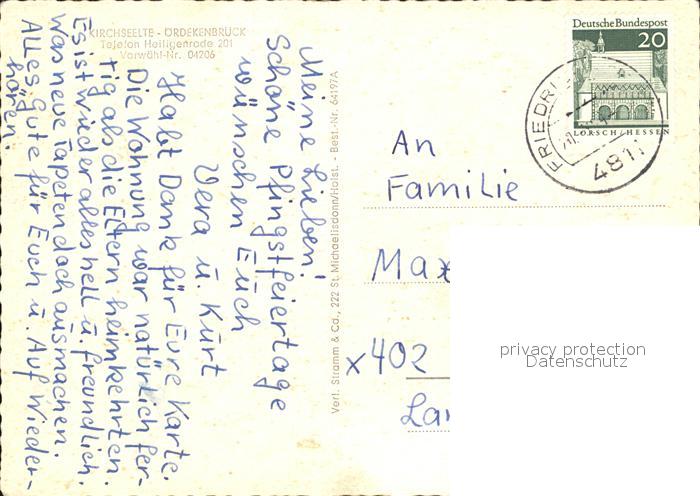 KIRCHSEELTE - ORDEKENBRÜCK
Telefon Heiligenrode 201
Vorwähl-Nr. 04206
Meine Lieben!
Schöne Pfingstfeiertage
wünschen Euch
Vera u. Kurt
Habt Dank für Eure Karte.
Die Wohnung war natürlich fer-
tig als die Eltern heimkehrten.
Es ist wieder alles hell u. freundlich.
Was neue Tapeten doch ausmachen.
Alles Gute für Euch u. Auf Wieder-
hören.
Verl. Stramm & Co., 222 St. Michaelisdonn/Holst. - Best.-Nr. 64197A
Deutsche Bundespost
20
LORSCH/HESSEN
FRIEDR
4811
An
Familie
Max
x402
La
privacy protection
Datenschutz